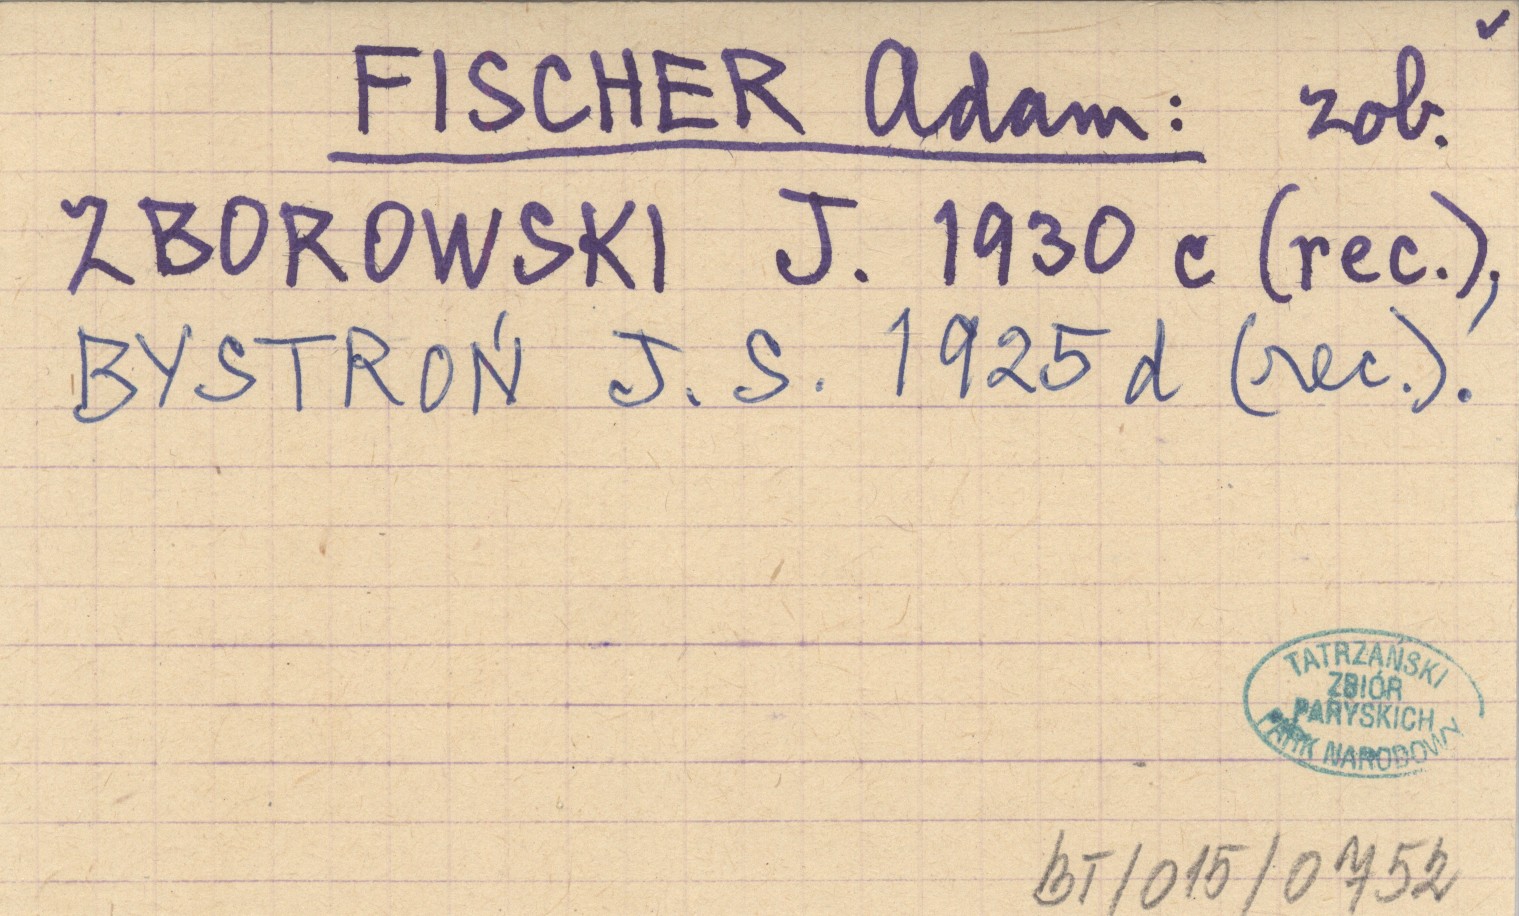 FISCHER Adam: zob. ✓
ZBOROWSKI J. 1930 c (rec.),
BYSTROŃ J. S. 1925 d (rec.).
TATRZAŃSKI
ZBIÓR
PARYSKICH
PARK NARODOWY
BT/015/0752